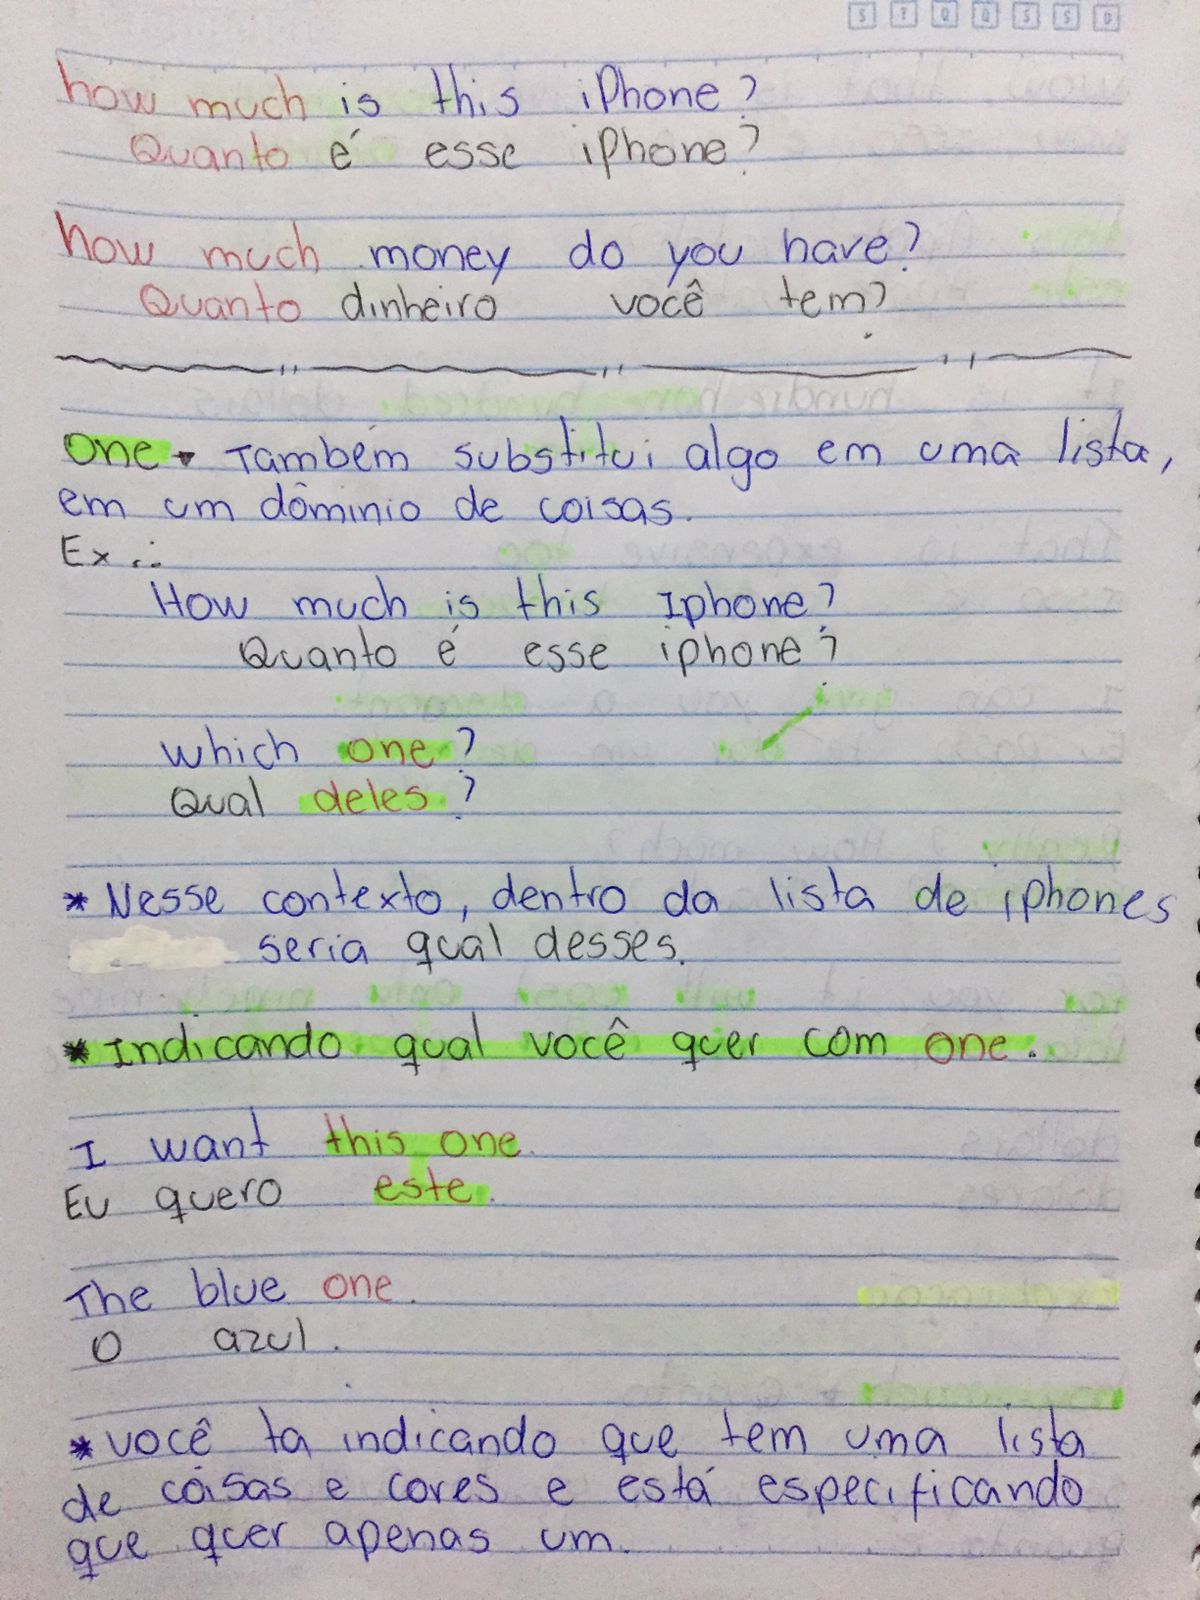 S T Q Q S S D
how much is this iPhone?
Quanto é esse iphone?
how much money do you have?
Quanto dinheiro você tem?
one → Também substitui algo em uma lista,
em um dôminio de coisas.
Ex.:
How much is this Iphone?
Quanto é esse iphone?
Which one?
Qual deles?
* Nesse contexto, dentro da lista de iphones
seria qual desses.
* Indicando qual você quer com one.
I want this one.
Eu quero este.
The blue one.
O azul.
* você ta indicando que tem uma lista
de coisas e cores e está especificando
que quer apenas um.